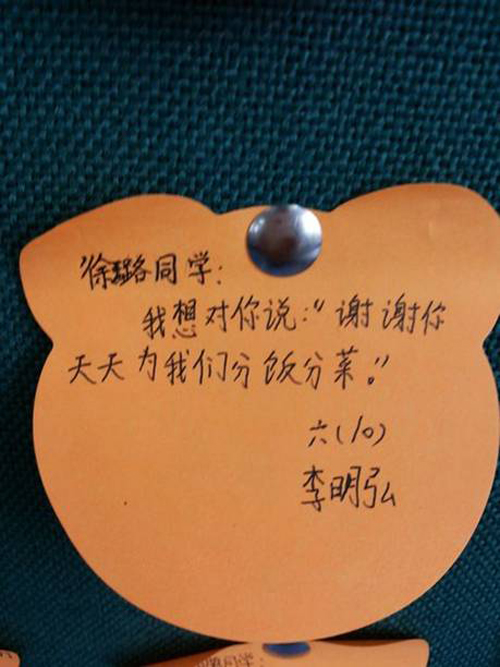 徐璐同学:
我想对你说:“谢谢你
天天为我们分饭分菜。”
六(10)
李明弘